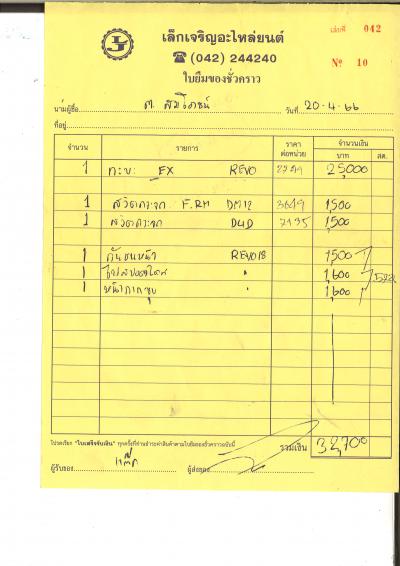 เล่มที่ 042
เล็กเจริญอะไหล่ยนต์
☎ (042) 244240
№ 10
ใบยืมของชั่วคราว
นามผู้ซื้อ วันที่ 20-4-66
ที่อยู่
จำนวน รายการ ราคาต่อหน่วย จำนวนเงิน
บาท สต.
1 กะบะ EX REVO 25,000
1 สวิตกระจก F.RH DM12 3649 1,500
1 สวิตกระจก D4D 7135 1,500
1 กันชนหน้า REVO18 1,500
1 " 1,600
1 หน้ากากชุบ 1,600
โปรดเรียก "ใบเสร็จรับเงิน" ทุกครั้งที่ท่านชำระค่าสินค้าตามใบยืมของชั่วคราวฉบับนี้
รวมเงิน 32,700
ผู้รับของ ผู้ส่งของ